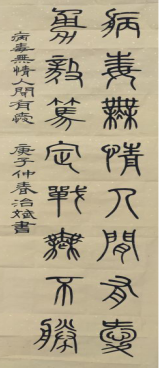 病毒無情人間有愛
勇毅篤定戰無不勝
病毒無情人間有愛 庚子仲春治斌書